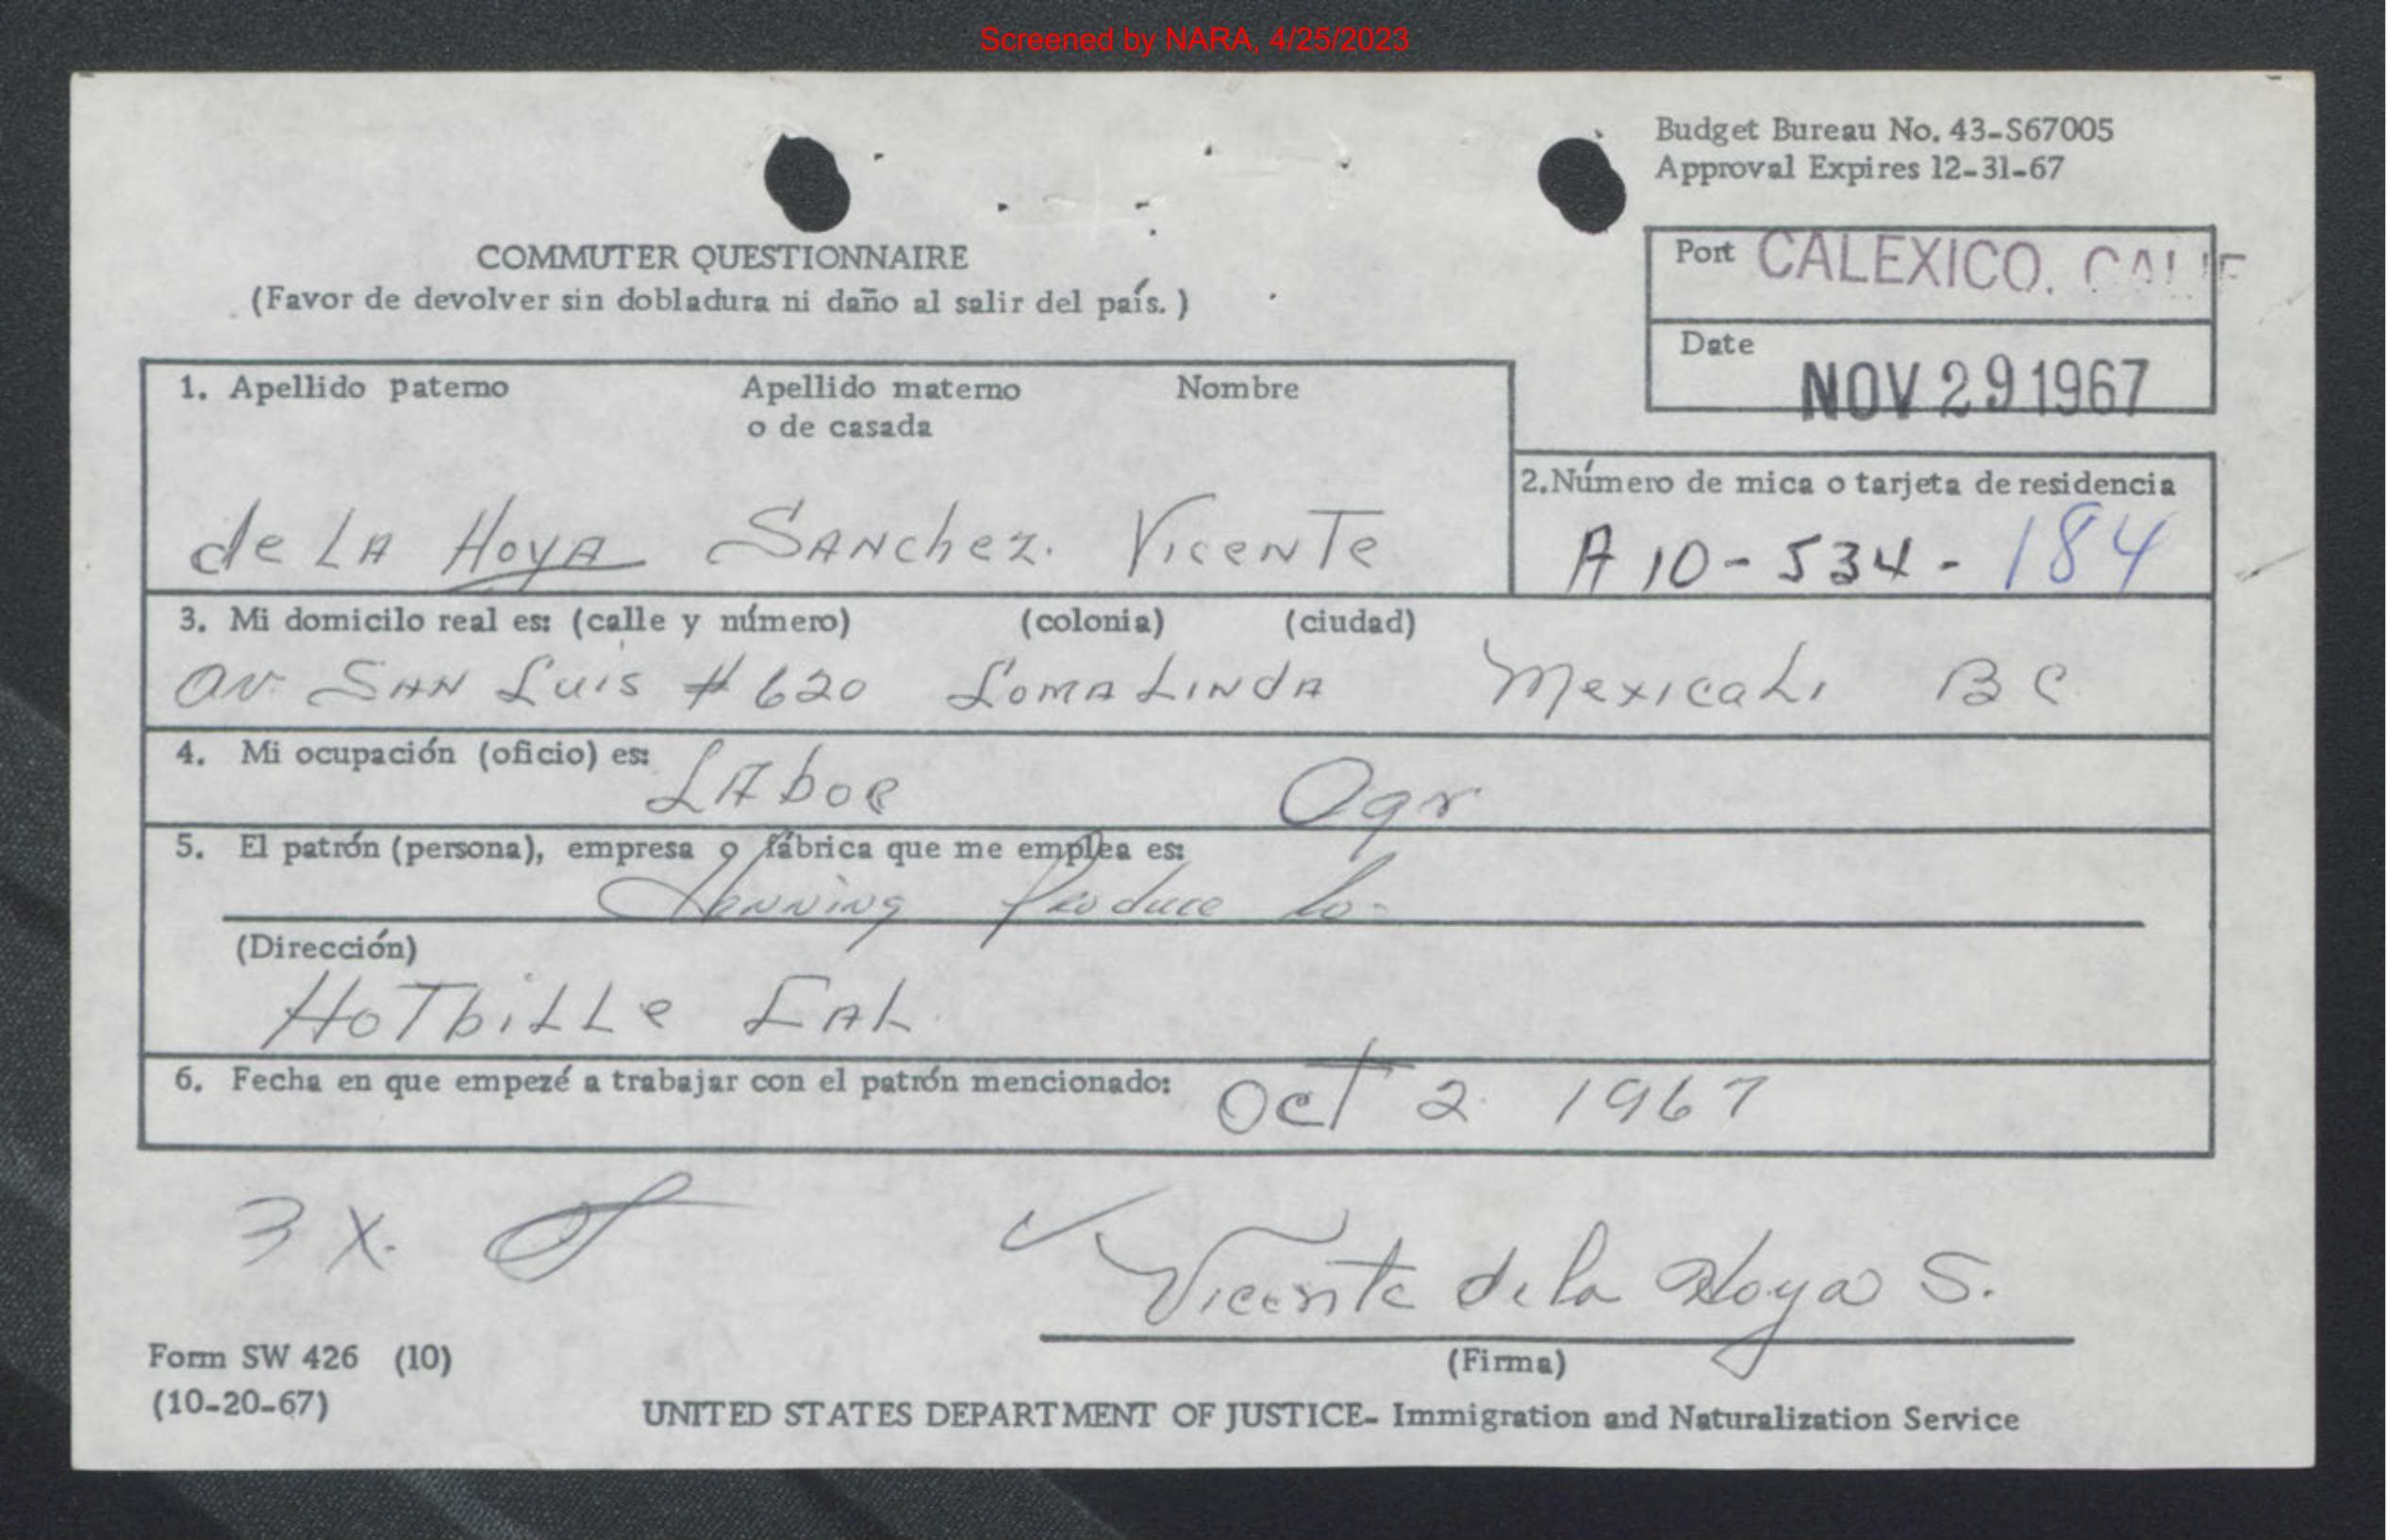 Screened by NARA, 4/25/2023
Budget Bureau No. 43-S67005
Approval Expires 12-31-67
COMMUTER QUESTIONNAIRE
(Favor de devolver sin dobladura ni daño al salir del país.)
Port CALEXICO, CALIF
Date NOV 29 1967
1. Apellido paterno Apellido materno Nombre
o de casada
de LA HOYA SANchez. VicenTe
2. Número de mica o tarjeta de residencia
A 10-534-184
3. Mi domicilo real es: (calle y número) (colonia) (ciudad)
av. SAN Luis #620 LomA LINdA MexicaLi BC
4. Mi ocupación (oficio) es: LAboR Agr
5. El patrón (persona), empresa o fábrica que me emplea es:
Produce Co.
(Dirección)
HoTbiLLe CAL.
6. Fecha en que empezé a trabajar con el patrón mencionado: Oct 2 1967
3 X.
Vicente de la Hoya S.
(Firma)
Form SW 426 (10)
(10-20-67)
UNITED STATES DEPARTMENT OF JUSTICE- Immigration and Naturalization Service